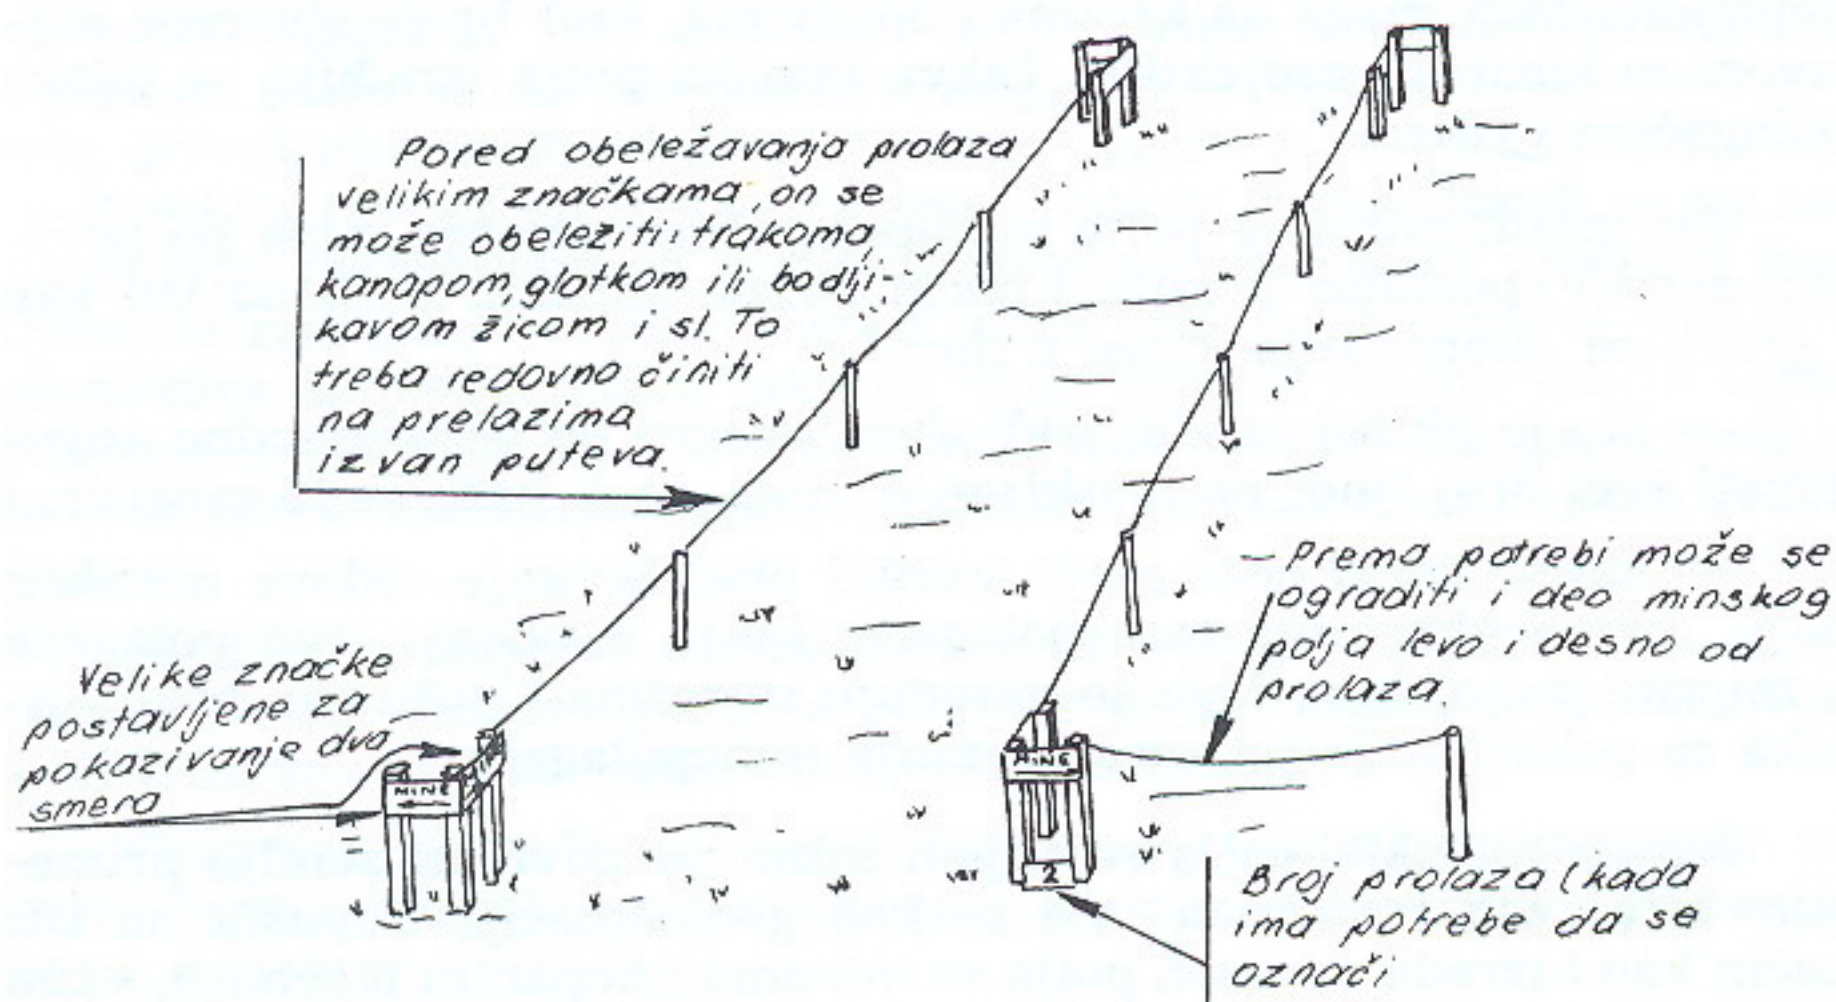 Pored obeležavanja prolaza
velikim značkama, on se
može obeležiti i trakama,
kanapom, glatkom ili bodlji-
kavom žicom i sl. To
treba redovno činiti
na prelazima
izvan puteva.
– Prema potrebi može se
ograditi i deo minskog
polja levo i desno od
prolaza
Velike značke
postavljene za
pokazivanje dva
smera
MINE
MINE
2
Broj prolaza (kada
ima potrebe da se
označi